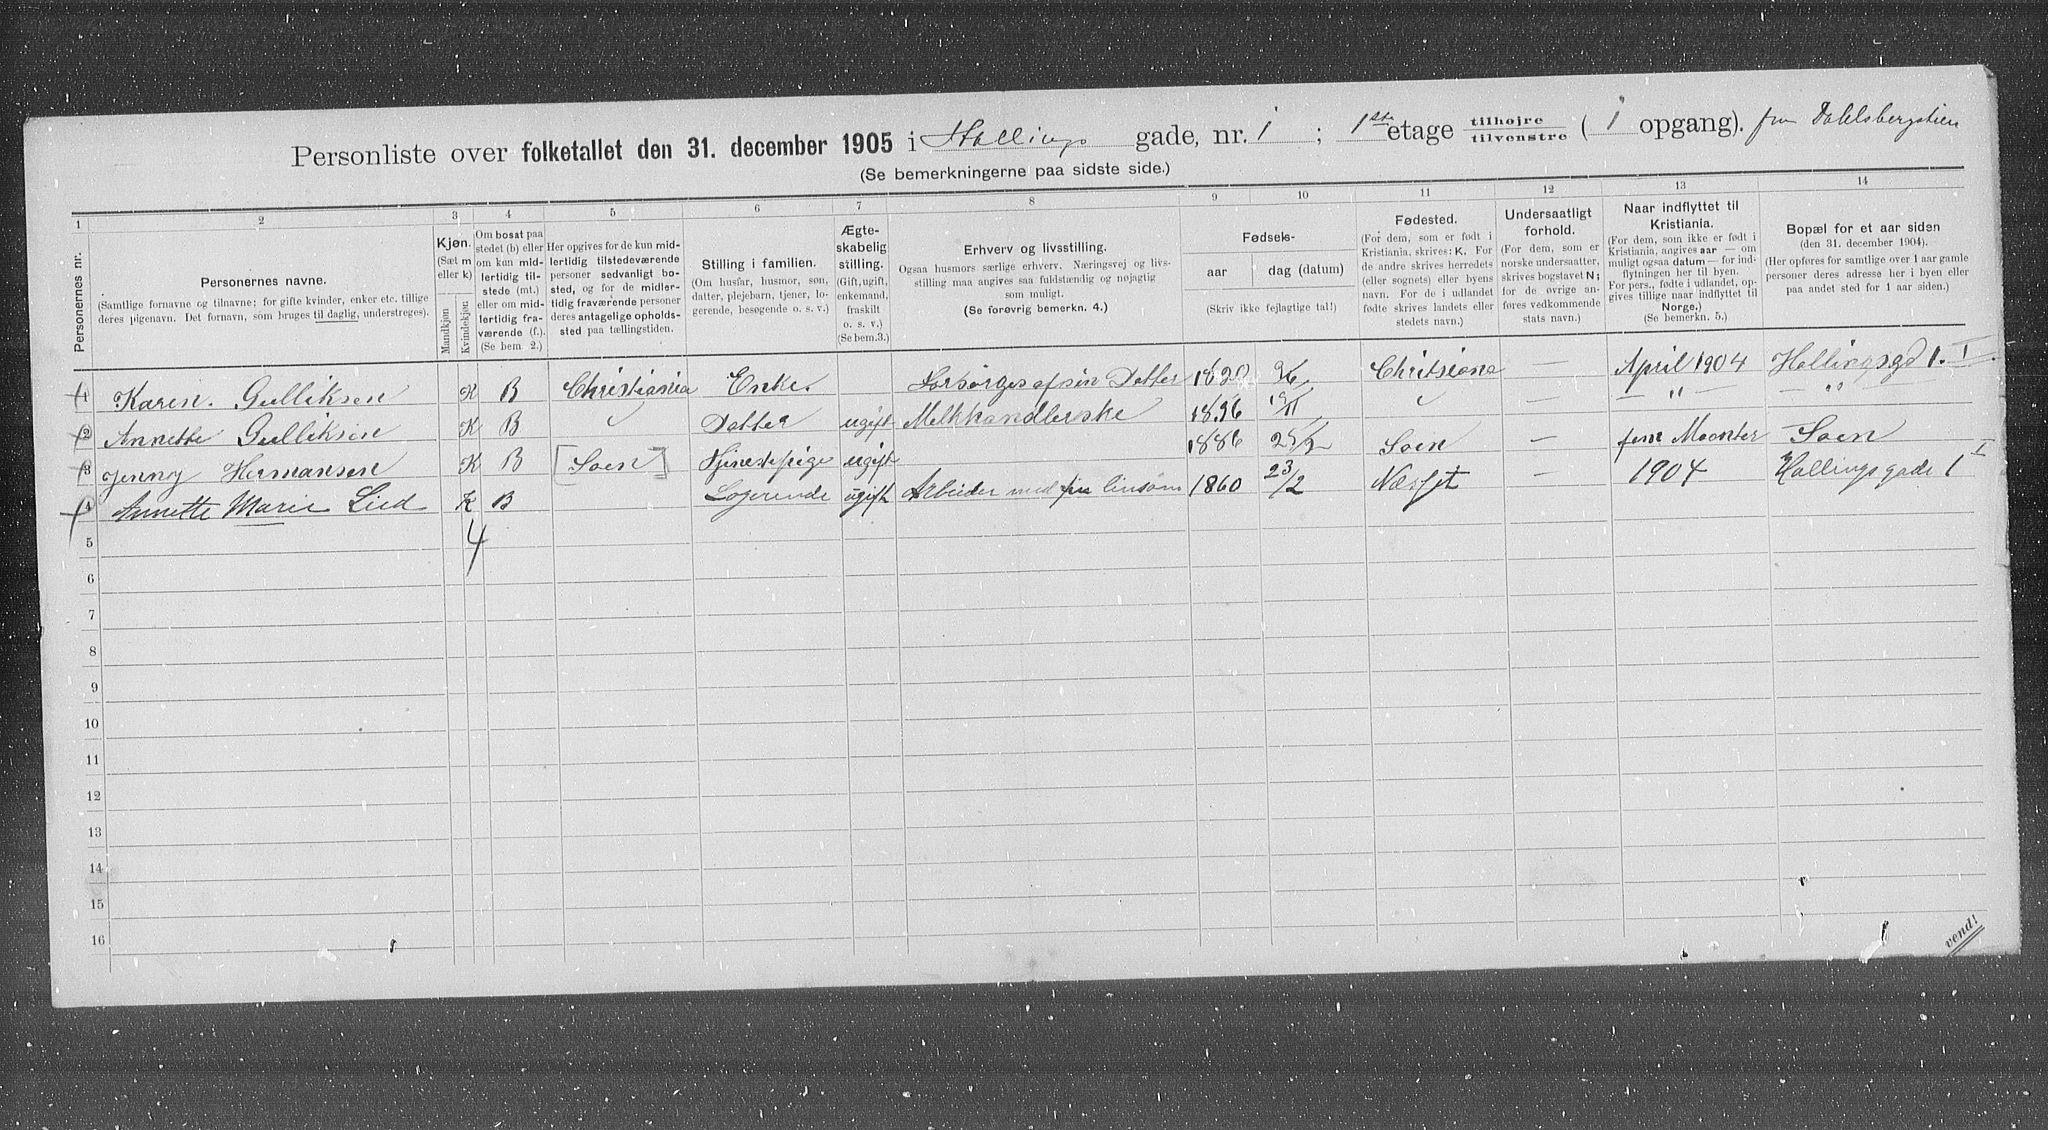 Personliste over folketallet den 31. december 1905 i Hallings gade, nr. 1 ; 1ste etage tilhøjre / tilvenstre ( 1 opgang). fra Dahlsbergstien
(Se bemerkningerne paa sidste side.)
1 2 3 4 5 6 7 8 9 10 11 12 13 14
Personernes nr.
Personernes navne.
(Samtlige fornavne og tilnavne; for gifte kvinder, enker etc. tillige
deres pigenavn. Det fornavn, som bruges til daglig, understreges).
Kjøn.
(Sæt m
eller k)
Mandkjøn
Kvindekjøn
Om bosat paa
stedet (b) eller
om kun mid-
lertidig til-
stede (mt.)
eller om mid-
lertidig fra-
værende (f.).
(Se bem. 2.)
Her opgives for de kun mid-
lertidig tilstedeværende
personer sedvanligt bo-
sted, og for de midler-
tidig fraværende personer
deres antagelige opholds-
sted paa tællingstiden.
Stilling i familien.
(Om husfar, husmor, søn,
datter, plejebarn, tjener, lo-
gerende, besøgende o. s. v.)
Ægte-
skabelig
stilling.
(Gift, ugift,
enkemand,
fraskilt
o. s. v.)
(Se bem.3.)
Erhverv og livsstilling.
Ogsaa husmors særlige erhverv. Næringsvej og livs-
stilling maa angives saa fuldstændig og nøjagtig
som muligt.
(Se forøvrig bemerkn. 4.)
Fødsels-
aar
dag (datum)
(Skriv ikke fejlagtige tal!)
Fødested.
(For dem, som er født i
Kristiania, skrives: K. For
de andre skrives herredets
(eller sognets) eller byens
navn. For de i udlandet
fødte skrives landets eller
stedets navn.)
Undersaatligt
forhold.
(For dem, som er
norske undersaatter,
skrives bogstavet N;
for de øvrige an-
føres vedkommende
stats navn.)
Naar indflyttet til
Kristiania.
(For dem, som ikke er født i
Kristiania, angives aar — om
muligt ogsaa datum — for ind-
flytningen her til byen.
For pers., fødte i udlandet, op-
gives tillige naar indflyttet til
Norge.)
(Se bemerkn. 5.)
Bopæl for et aar siden
(den 31. december 1904).
(Her opføres for samtlige over 1 aar gamle
personer deres adresse her i byen eller
paa andet sted for 1 aar siden.)
1 Karen. Gulliksen K B Christiania Enke. Forsørges af sin Datter Christiana — April 1904 Hallingsgd 1. I
2 Annette Gulliksen K B " Datter ugift Melkhandlerske 1896 19/11 " — — " — — " —
3 Jenny Hermansen K B [Soen] Tjenestepige ugift 1886 Soen — Soen
4 Annette Marie Lied K B Logerende ugift Arbeider med 1860 23/2 Næsset — 1904 Hallings gade 1 I
4
5
6
7
8
9
10
11
12
13
14
15
16
vend!